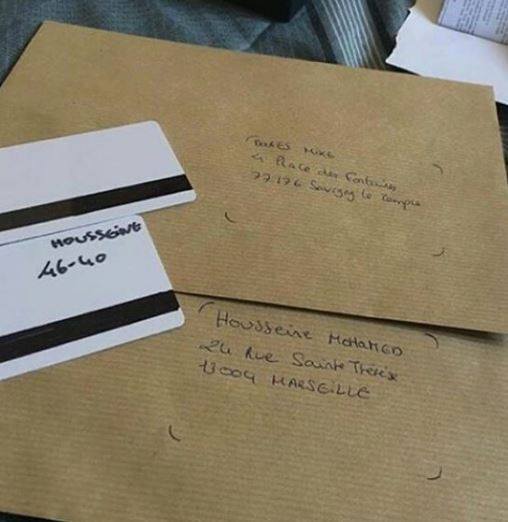 MIKE
4 Place des Fontaines
77176 Savigny le Temple
HOUSSEINE
46-40
Housseine MOHAMED
24 Rue Sainte Thérèse
13004 MARSEILLE